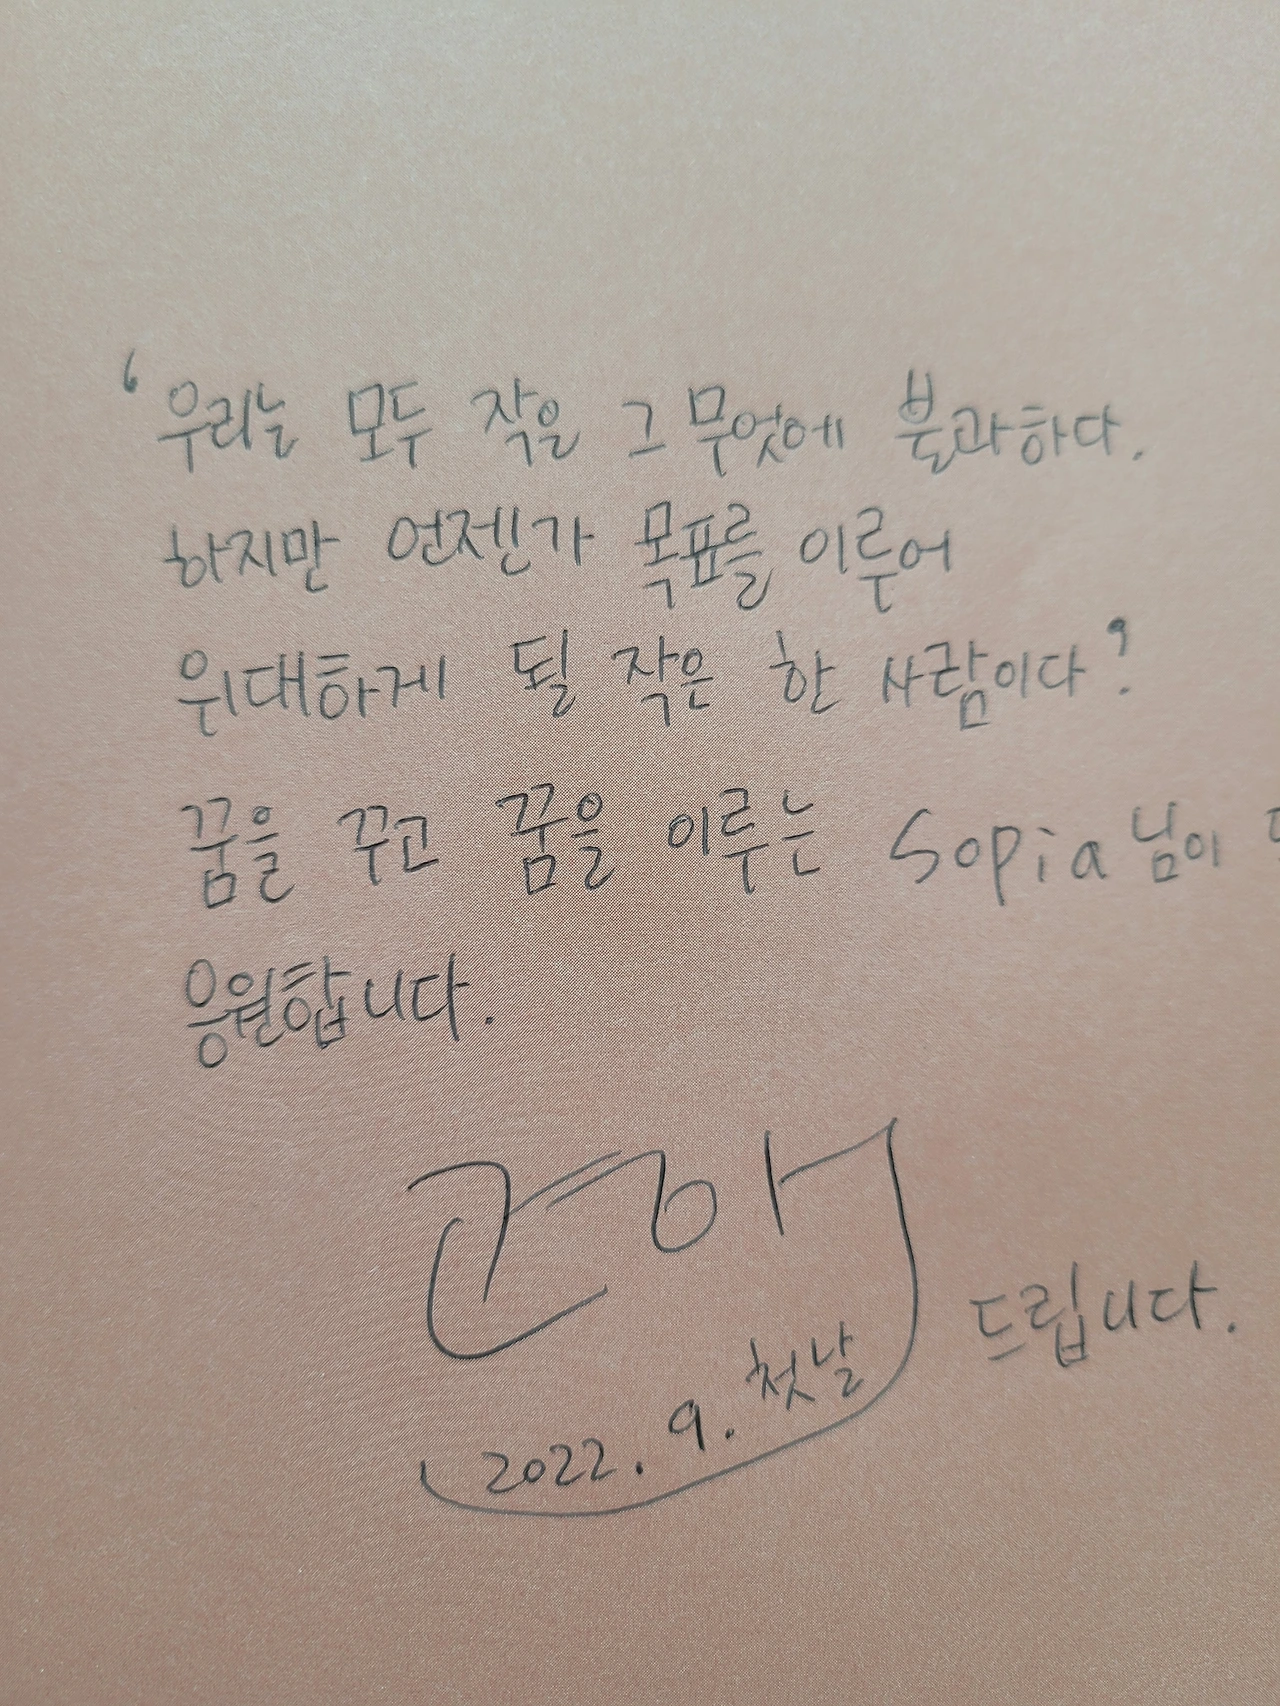 '우리는 모두 작은 그 무엇에 불과하다.
하지만 언젠가 목표를 이루어
위대하게 될 작은 한 사람이다.'
꿈을 꾸고 꿈을 이루는 Sopia님이
응원합니다.
드립니다.
2022. 9. 첫날